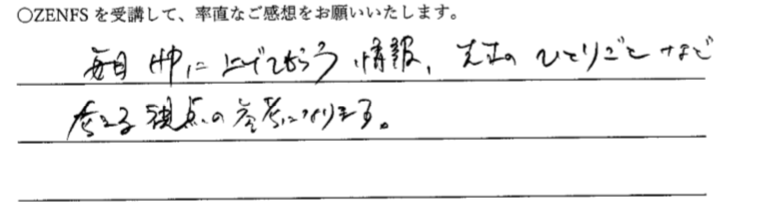 ○ZENFSを受講して、率直なご感想をお願いいたします。
毎日HPに上げてもらう情報、先生のひとりごとなど
考える視点の参考になります。